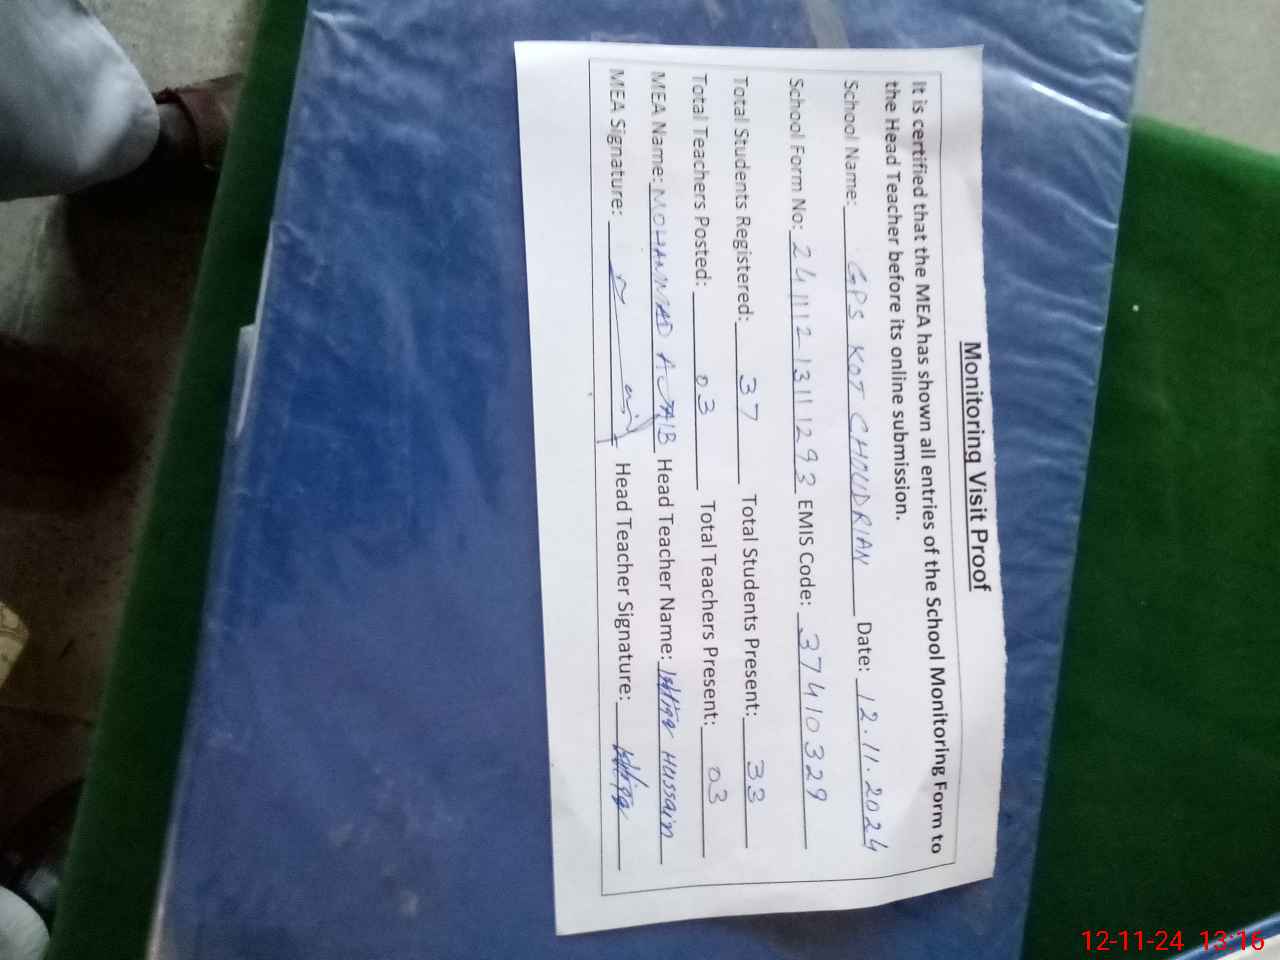 Monitoring Visit Proof
It is certified that the MEA has shown all entries of the School Monitoring Form to
the Head Teacher before its online submission.
School Name: GPS KOT CHOUDRIAN Date: 12.11.2024
School Form No: 24111213111293 EMIS Code: 37410329
Total Students Registered: 37 Total Students Present: 33
Total Teachers Posted: 03 Total Teachers Present: 03
MEA Name: MOHAMMAD Head Teacher Name: Hussain
MEA Signature: Head Teacher Signature:
12-11-24 13:16